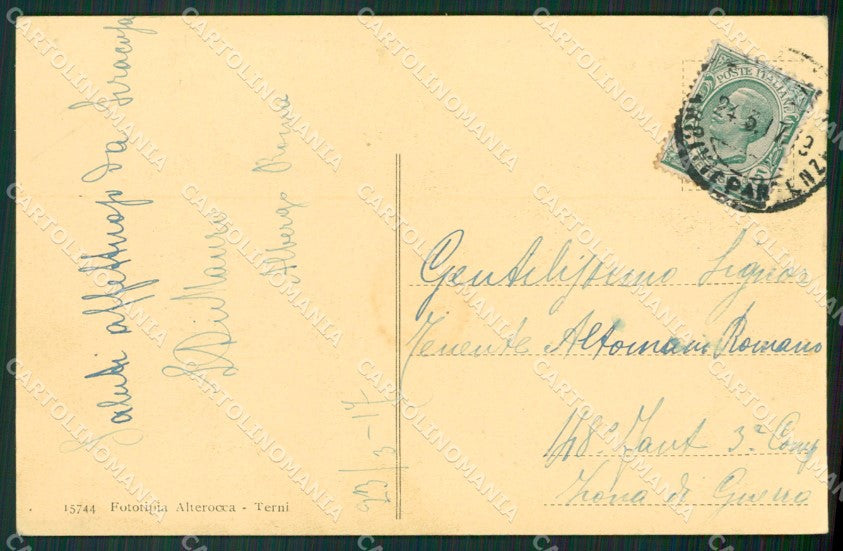 Saluti affettuosi da Siracusa
Di Mauro
Albergo Roma
23/3-17
15744 Fototipia Alterocca - Terni
POSTE ITALIANE
24.3.17
PARTENZE
Gentilissimo Signor
Tenente Altomani Romano
148° Fant 3ª Comp
Zona di Guerra
CARTOLINOMANIA